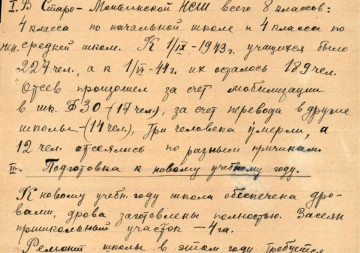 I. В Старо- НСШ всего 8 классов:
4 класса по начальной школе и 4 класса по
средней школе. К 1/IX-1943г. учащихся было
227 чел, а к 1/VI-44г. их осталось 189 чел.
Отсев произошел за счет мобилизации
в шк. ФЗО-(17 чел), за счет перевода в другие
школы-(11 чел), Три человека умерли, а
12 чел отсеялись по разным причинам.
II. Подготовка к новому учебному году.
К новому учебн. году школа обеспечена дро-
вами, дрова заготовлены полностью. Засеян
пришкольный участок - 4га.
Ремонт школы в этом году требуется